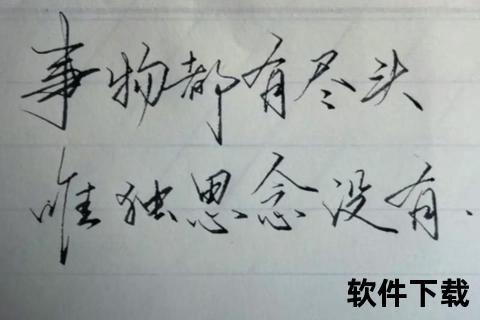 事物都有尽头
唯独思念没有.
软件下载